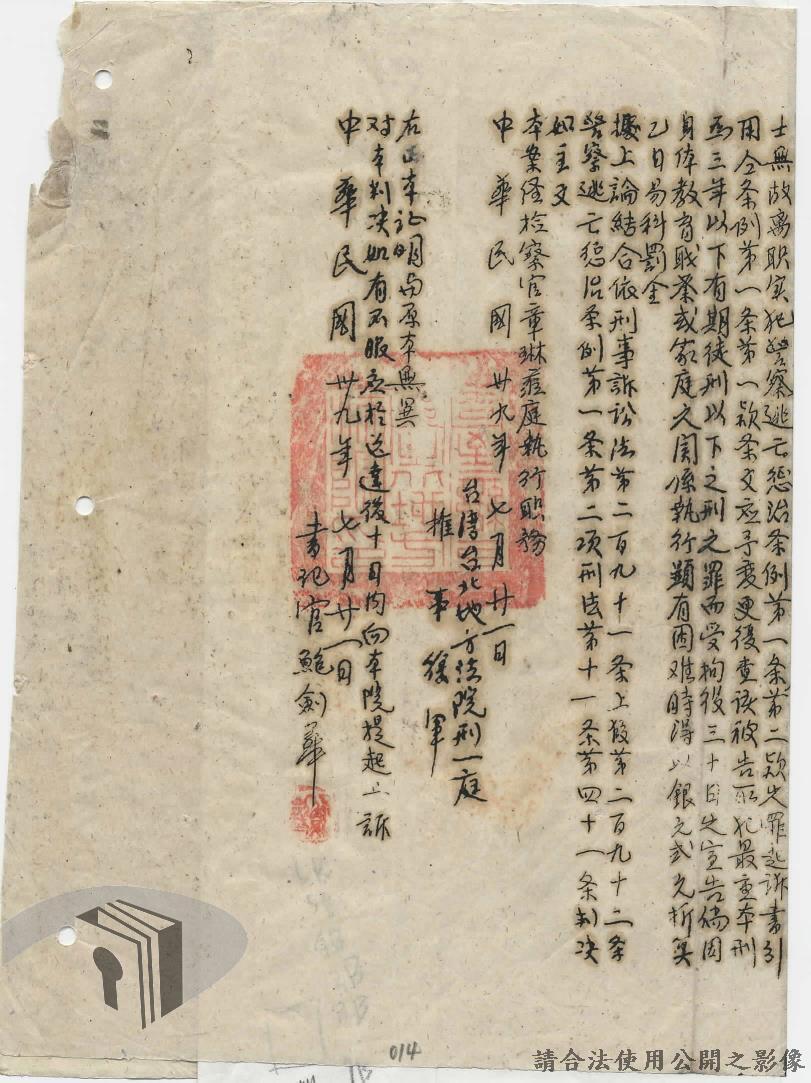 士無故离职实犯警察逃亡惩治条例第一条第二款之罪起诉書引
用仝条例第一条第一款条文应予変更復查该被告所犯最重本刑
為三年以下有期徒刑以下之刑之罪而受拘役三十日之宣告倘因
身体教育职業或家庭之関係執行顕有困难時得以銀元弍元折算
乙日易科罰金
據上論結合依刑事訴訟法第二百九十一条上段第二百九十二条
警察逃亡惩治条例第一条第二项刑法第十一条第四十一条判决
如主文
本案经检察官章琳蒞庭執行职務
中華民國卅九年七月廿一日
台湾台北地方法院刑一庭
推事 徐軍
右正本证明与原本無異
对本判决如有不服应於送達後十日内向本院提起上訴
中華民國卅九年七月廿一日
書记官鮑劍華
014
請合法使用公開之影像